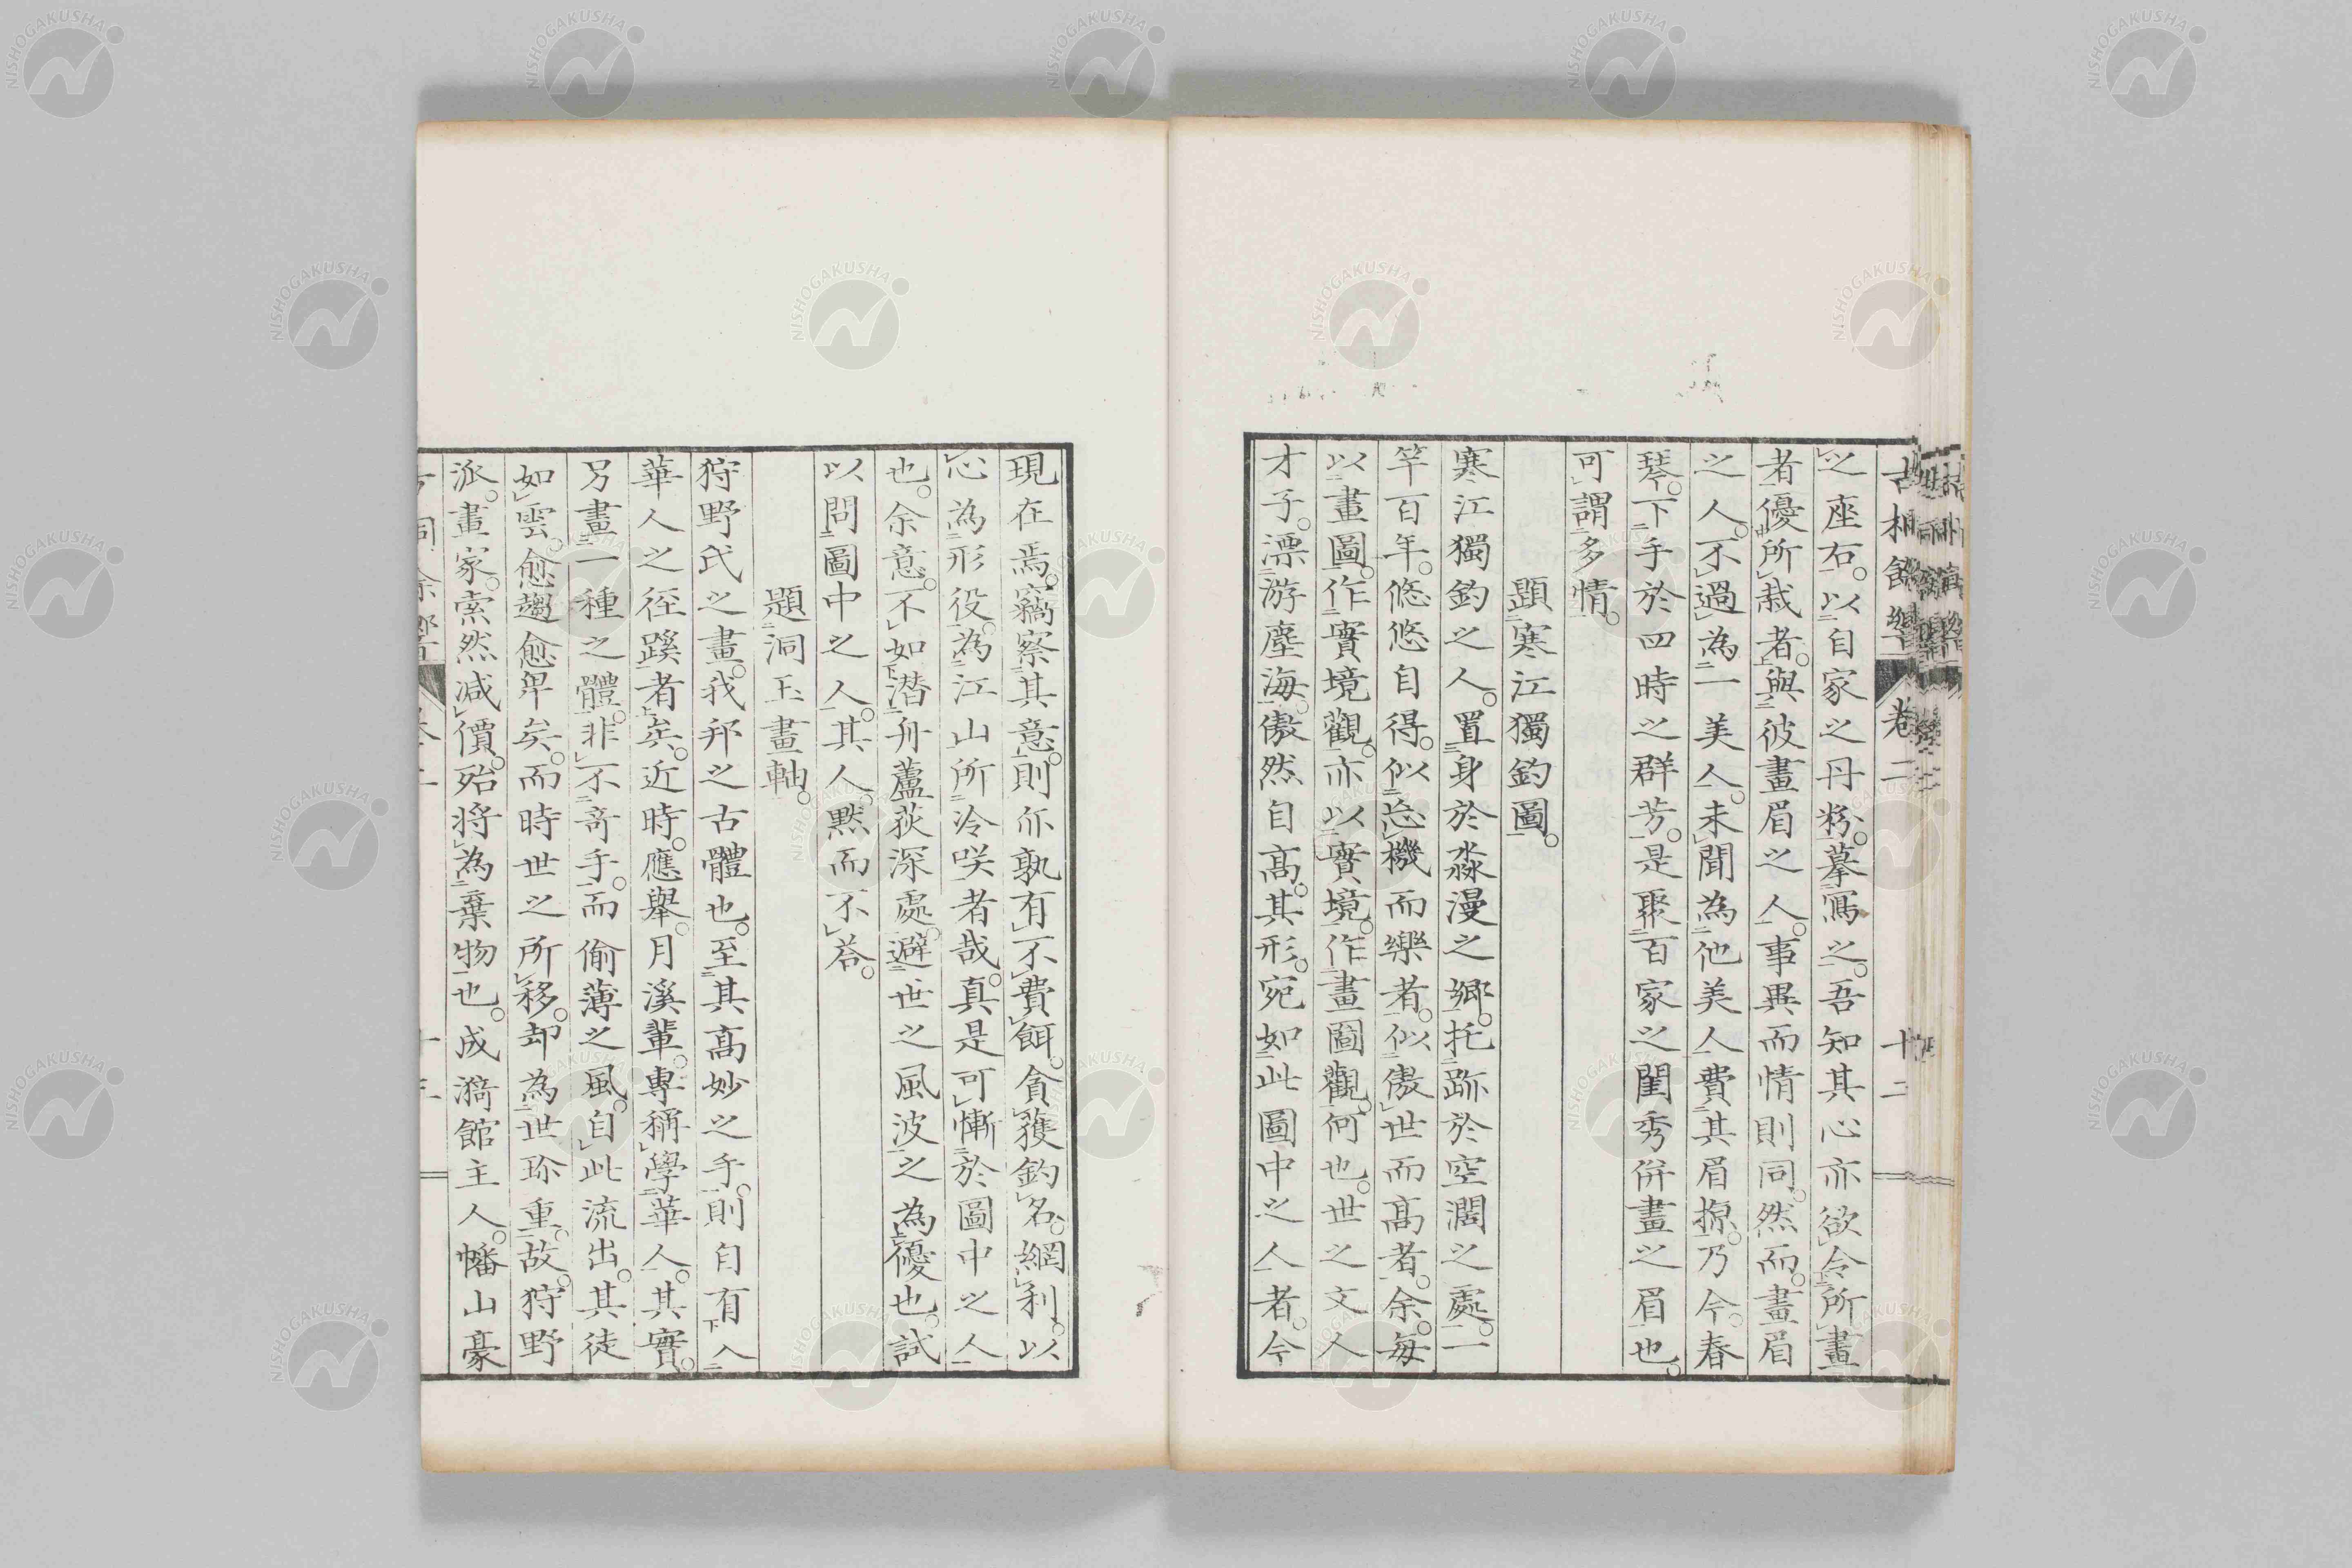 之座右。以自家之丹粉。摹寫之。吾知其心亦欲令所畫
者優所栽者。與彼畫眉之人。事異而情則同。然而畫眉
之人。不過為一美人。未聞為他美人費其眉掠。乃今。春
琴。下手於四時之群芳。是聚百家之閨秀併畫之眉也。
可謂多情。
題寒江獨釣圖。
寒江獨釣之人。置身於淼漫之鄉。托跡於空濶之處。一
竿百年。悠悠自得。似忘機而樂者。似傲世而高者。余。每
以畫圖。作實境觀。亦以實境。作畫圖觀。何也。世之文人
才子。漂游塵海。傲然自高。其形。宛如此圖中之人者。今
現在焉。竊察其意。則亦孰有不費餌。貪獲釣名。網利。以
心為形役。為江山所冷咲者哉。真是可慚於圖中之人
也。余意。不如潜舟蘆荻深處。避世之風波之為優也。試
以問圖中之人。其人。黙而不荅。
題洞玉畫軸。
狩野氏之畫。我邦之古體也。至其高妙之手。則自有入
華人之徑蹊者矣。近時。應舉。月溪輩。專稱學華人。其實。
另畫一種之體。非不竒手。而偷薄之風。自此流出。其徒
如雲。愈趨愈卑矣。而時世之所移。却為世珎重。故。狩野
派。畫家。索然减價。殆将為棄物也。成漪館主人。幡山豪
卷二
十二
NISHOGAKUSHA